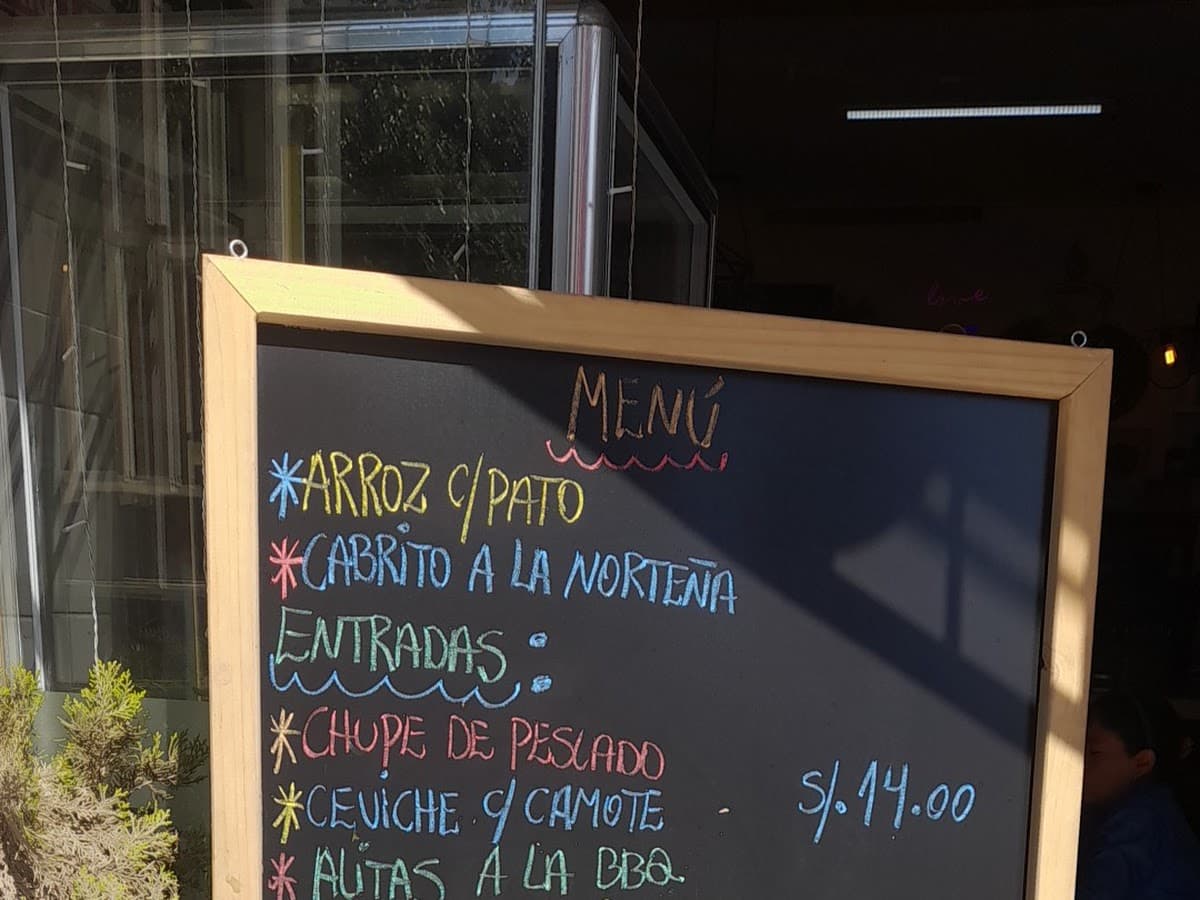 love
MENÚ
*ARROZ C/PATO
*CABRITO A LA NORTEÑA
ENTRADAS:
*CHUPE DE PESCADO
*CEVICHE C/CAMOTE S/.14.00
*ALITAS A LA BBQ.